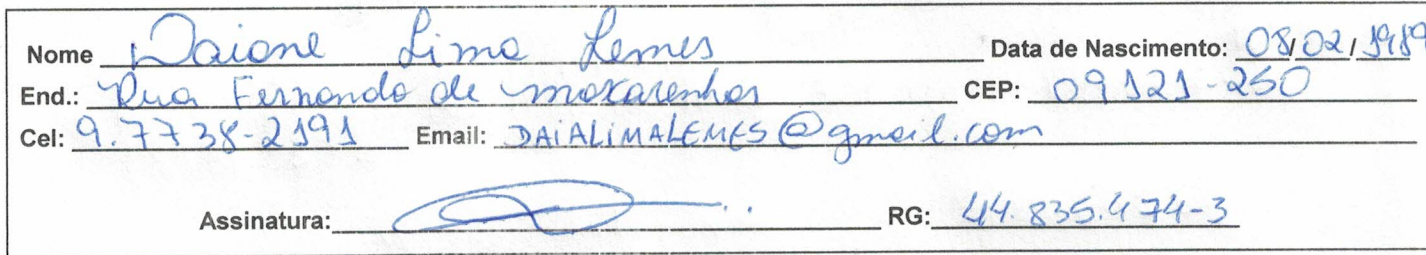 Nome Daiane Lima Lemes Data de Nascimento: 08/02/1989
End.: Rua Fernando de CEP: 09121-250
Cel: 9.7738-2191 Email: DAiALiMALEMES@gmail.com
Assinatura: RG: 44.835.474-3